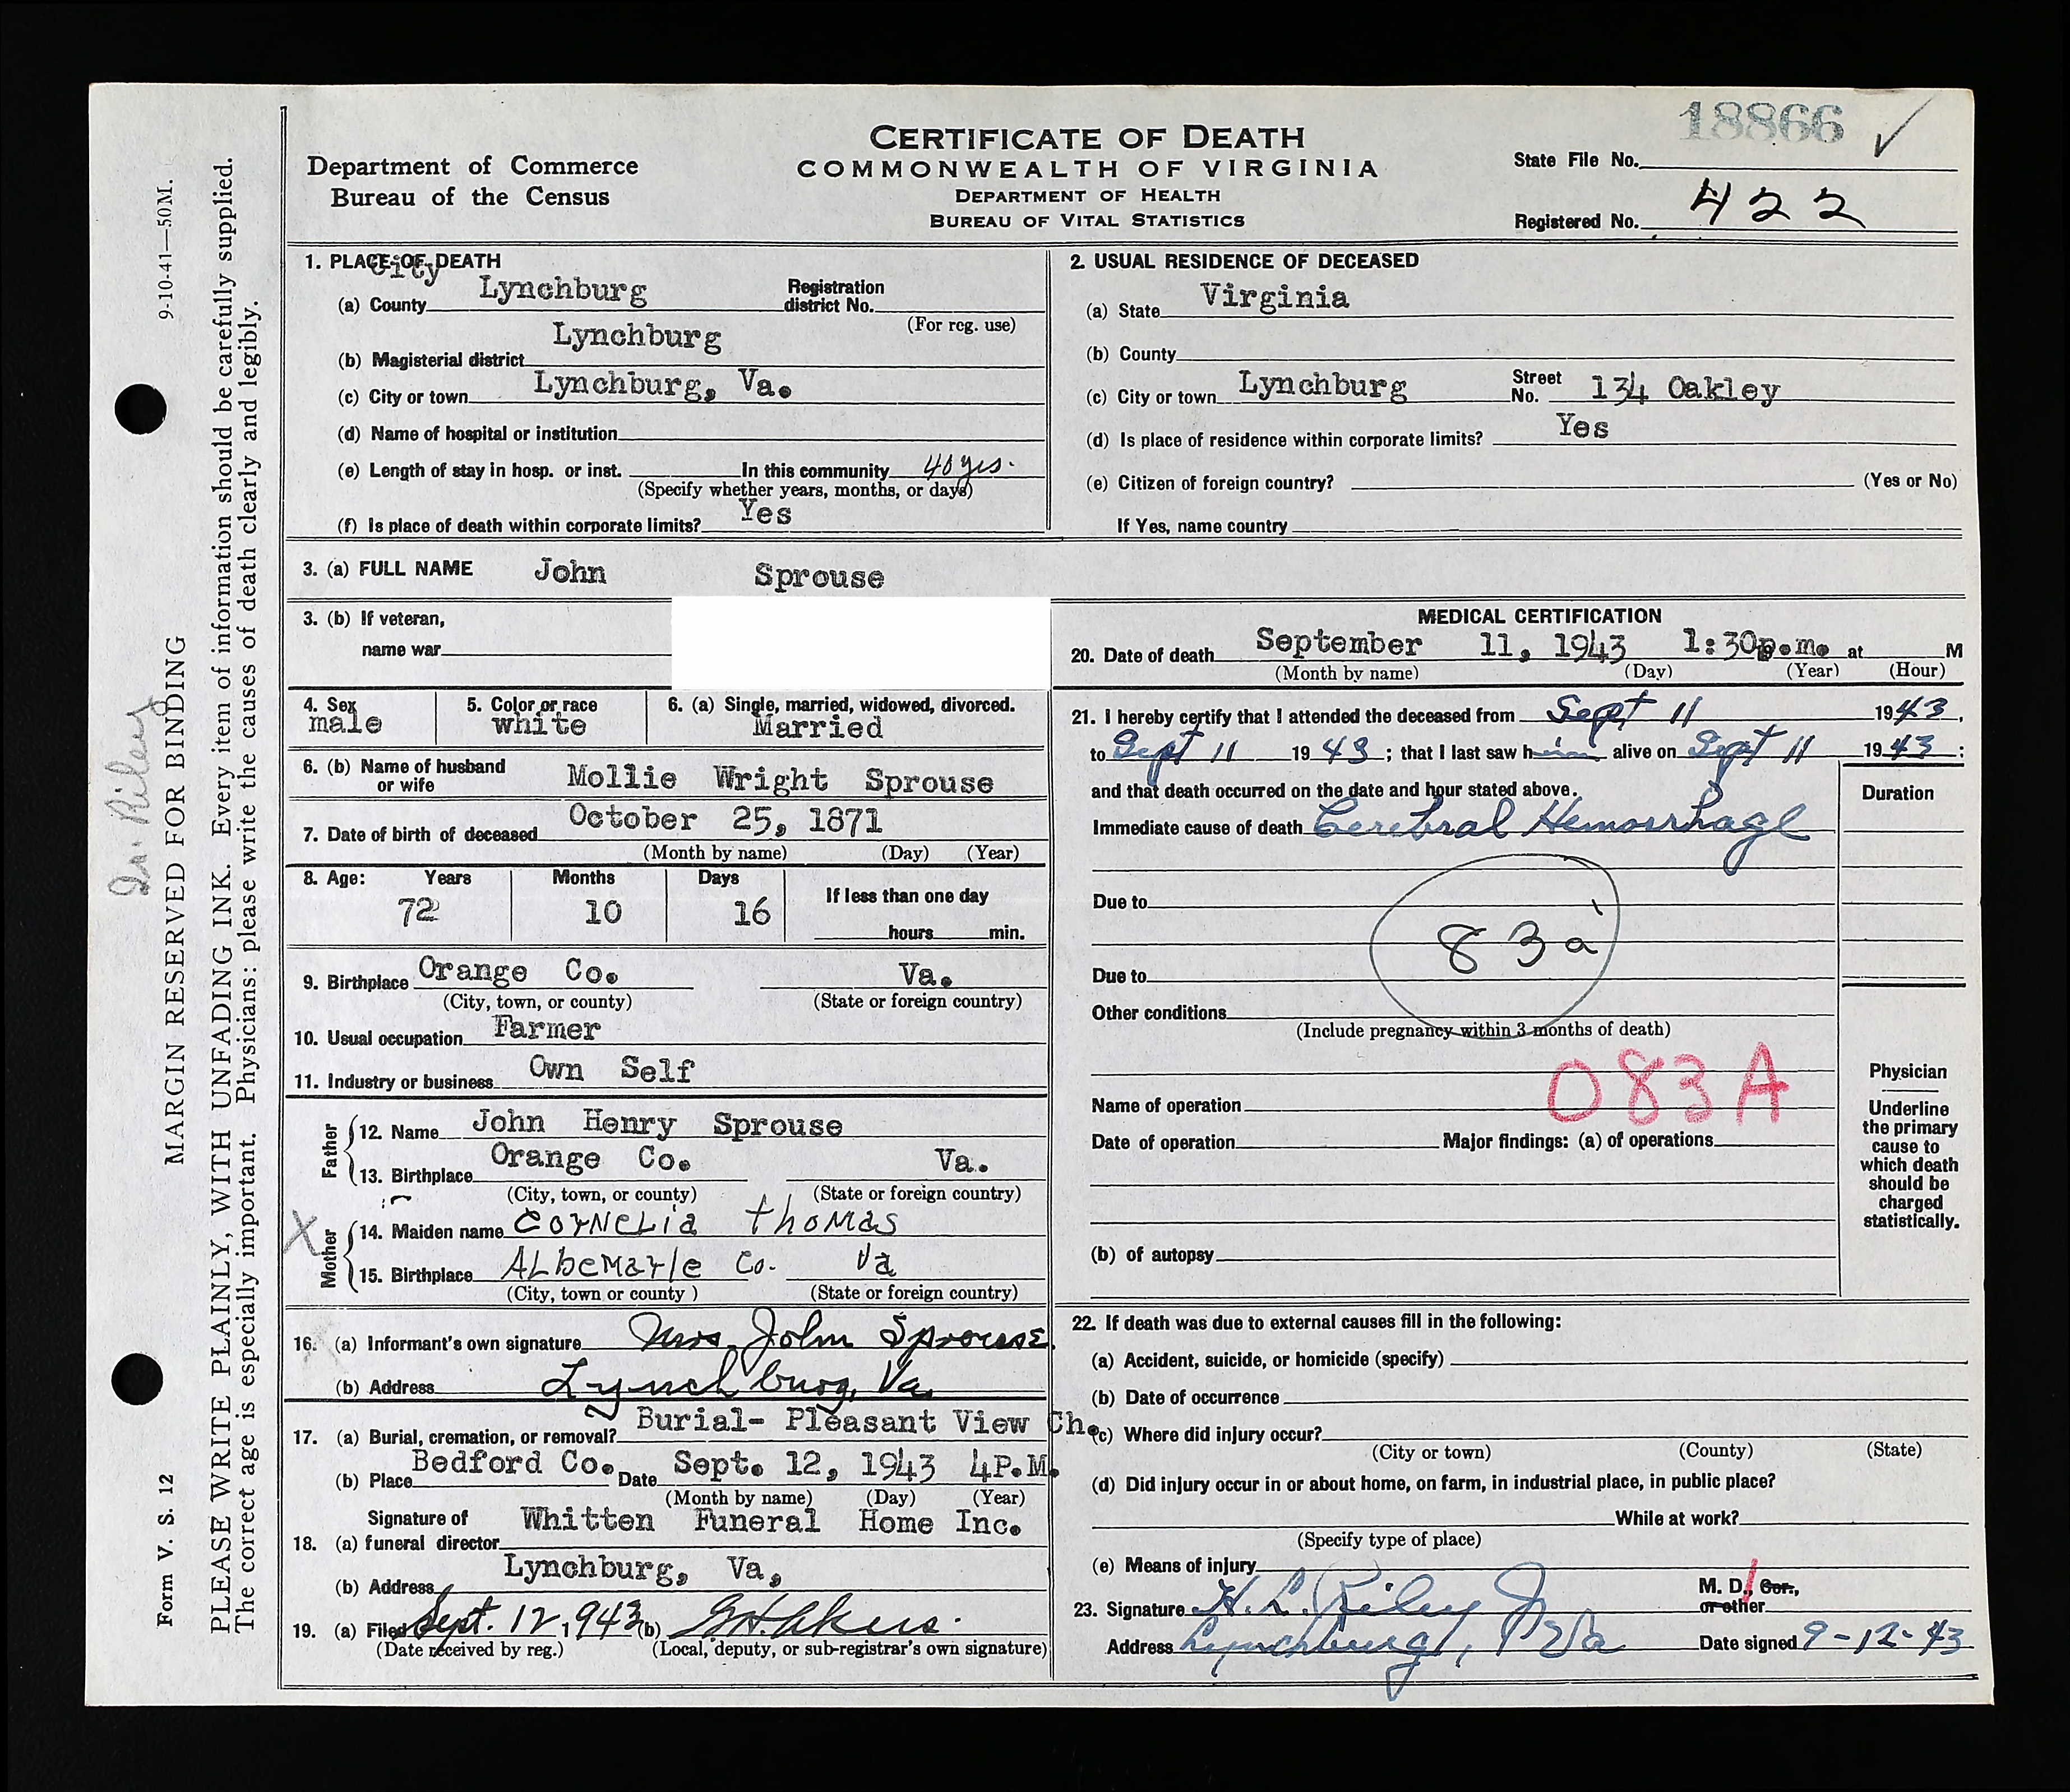 18866 ✓
CERTIFICATE OF DEATH
Department of Commerce
COMMONWEALTH OF VIRGINIA
State File No.
Bureau of the Census
DEPARTMENT OF HEALTH
BUREAU OF VITAL STATISTICS
Registered No. 422
1. PLACE OF DEATH
City
(a) County Lynchburg Registration district No.
(For reg. use)
(b) Magisterial district Lynchburg
(c) City or town Lynchburg, Va.
(d) Name of hospital or institution
(e) Length of stay in hosp. or inst. In this community 40 yrs.
(Specify whether years, months, or days)
(f) Is place of death within corporate limits? Yes
2. USUAL RESIDENCE OF DECEASED
(a) State Virginia
(b) County
(c) City or town Lynchburg Street No. 134 Oakley
(d) Is place of residence within corporate limits? Yes
(e) Citizen of foreign country? (Yes or No)
If Yes, name country
3. (a) FULL NAME John Sprouse
3. (b) If veteran,
name war
4. Sex male
5. Color or race white
6. (a) Single, married, widowed, divorced. Married
6. (b) Name of husband or wife Mollie Wright Sprouse
7. Date of birth of deceased October 25, 1871
(Month by name) (Day) (Year)
8. Age: Years Months Days If less than one day
72 10 16 hours min.
9. Birthplace Orange Co. Va.
(City, town, or county) (State or foreign country)
10. Usual occupation Farmer
11. Industry or business Own Self
Father
12. Name John Henry Sprouse
13. Birthplace Orange Co. Va.
(City, town, or county) (State or foreign country)
X
Mother
14. Maiden name Cornelia Thomas
15. Birthplace Albemarle Co. Va
(City, town or county) (State or foreign country)
16. (a) Informant's own signature Mrs. John Sprouse
(b) Address Lynchburg, Va.
17. (a) Burial, cremation, or removal? Burial- Pleasant View Ch.
(b) Place Bedford Co. Date Sept. 12, 1943 4P.M.
(Month by name) (Day) (Year)
Signature of
18. (a) funeral director Whitten Funeral Home Inc.
(b) Address Lynchburg, Va,
19. (a) Filed Sept. 12, 1943 (b) G.H. Akers.
(Date received by reg.) (Local, deputy, or sub-registrar's own signature)
MEDICAL CERTIFICATION
20. Date of death September 11, 1943 1:30p.m. at M
(Month by name) (Day) (Year) (Hour)
21. I hereby certify that I attended the deceased from Sept 11 1943,
to Sept 11 1943; that I last saw him alive on Sept 11 1943:
and that death occurred on the date and hour stated above.
Duration
Immediate cause of death Cerebral Hemorrhage
Due to
83a
Due to
Other conditions
(Include pregnancy within 3 months of death)
083A
Name of operation
Date of operation Major findings: (a) of operations
(b) of autopsy
Physician
Underline
the primary
cause to
which death
should be
charged
statistically.
22. If death was due to external causes fill in the following:
(a) Accident, suicide, or homicide (specify)
(b) Date of occurrence
(c) Where did injury occur?
(City or town) (County) (State)
(d) Did injury occur in or about home, on farm, in industrial place, in public place?
While at work?
(Specify type of place)
(e) Means of injury
23. Signature H. L. Riley Jr M. D., Cor., or other
Address Lynchburg, Va Date signed 9-12-43
9-10-41—50M.
Dr. Riley
MARGIN RESERVED FOR BINDING
PLEASE WRITE PLAINLY, WITH UNFADING INK. Every item of information should be carefully supplied.
The correct age is especially important. Physicians: please write the causes of death clearly and legibly.
Form V. S. 12